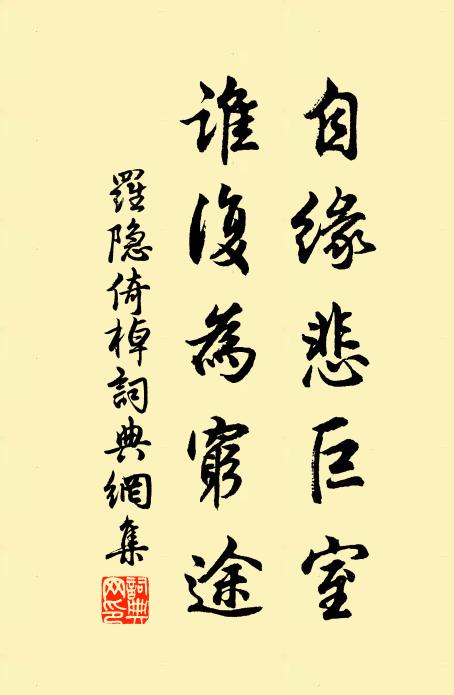 自緣悲巨室
誰復為窮途
羅隐倚棹詞典網集
詞典網印